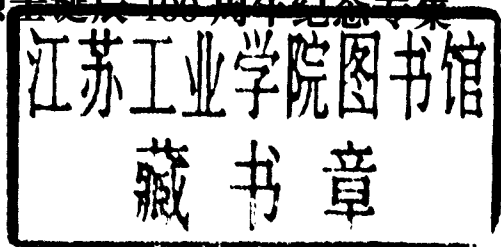 诞辰 100 周年纪念专集
江苏工业学院图书馆
藏书章